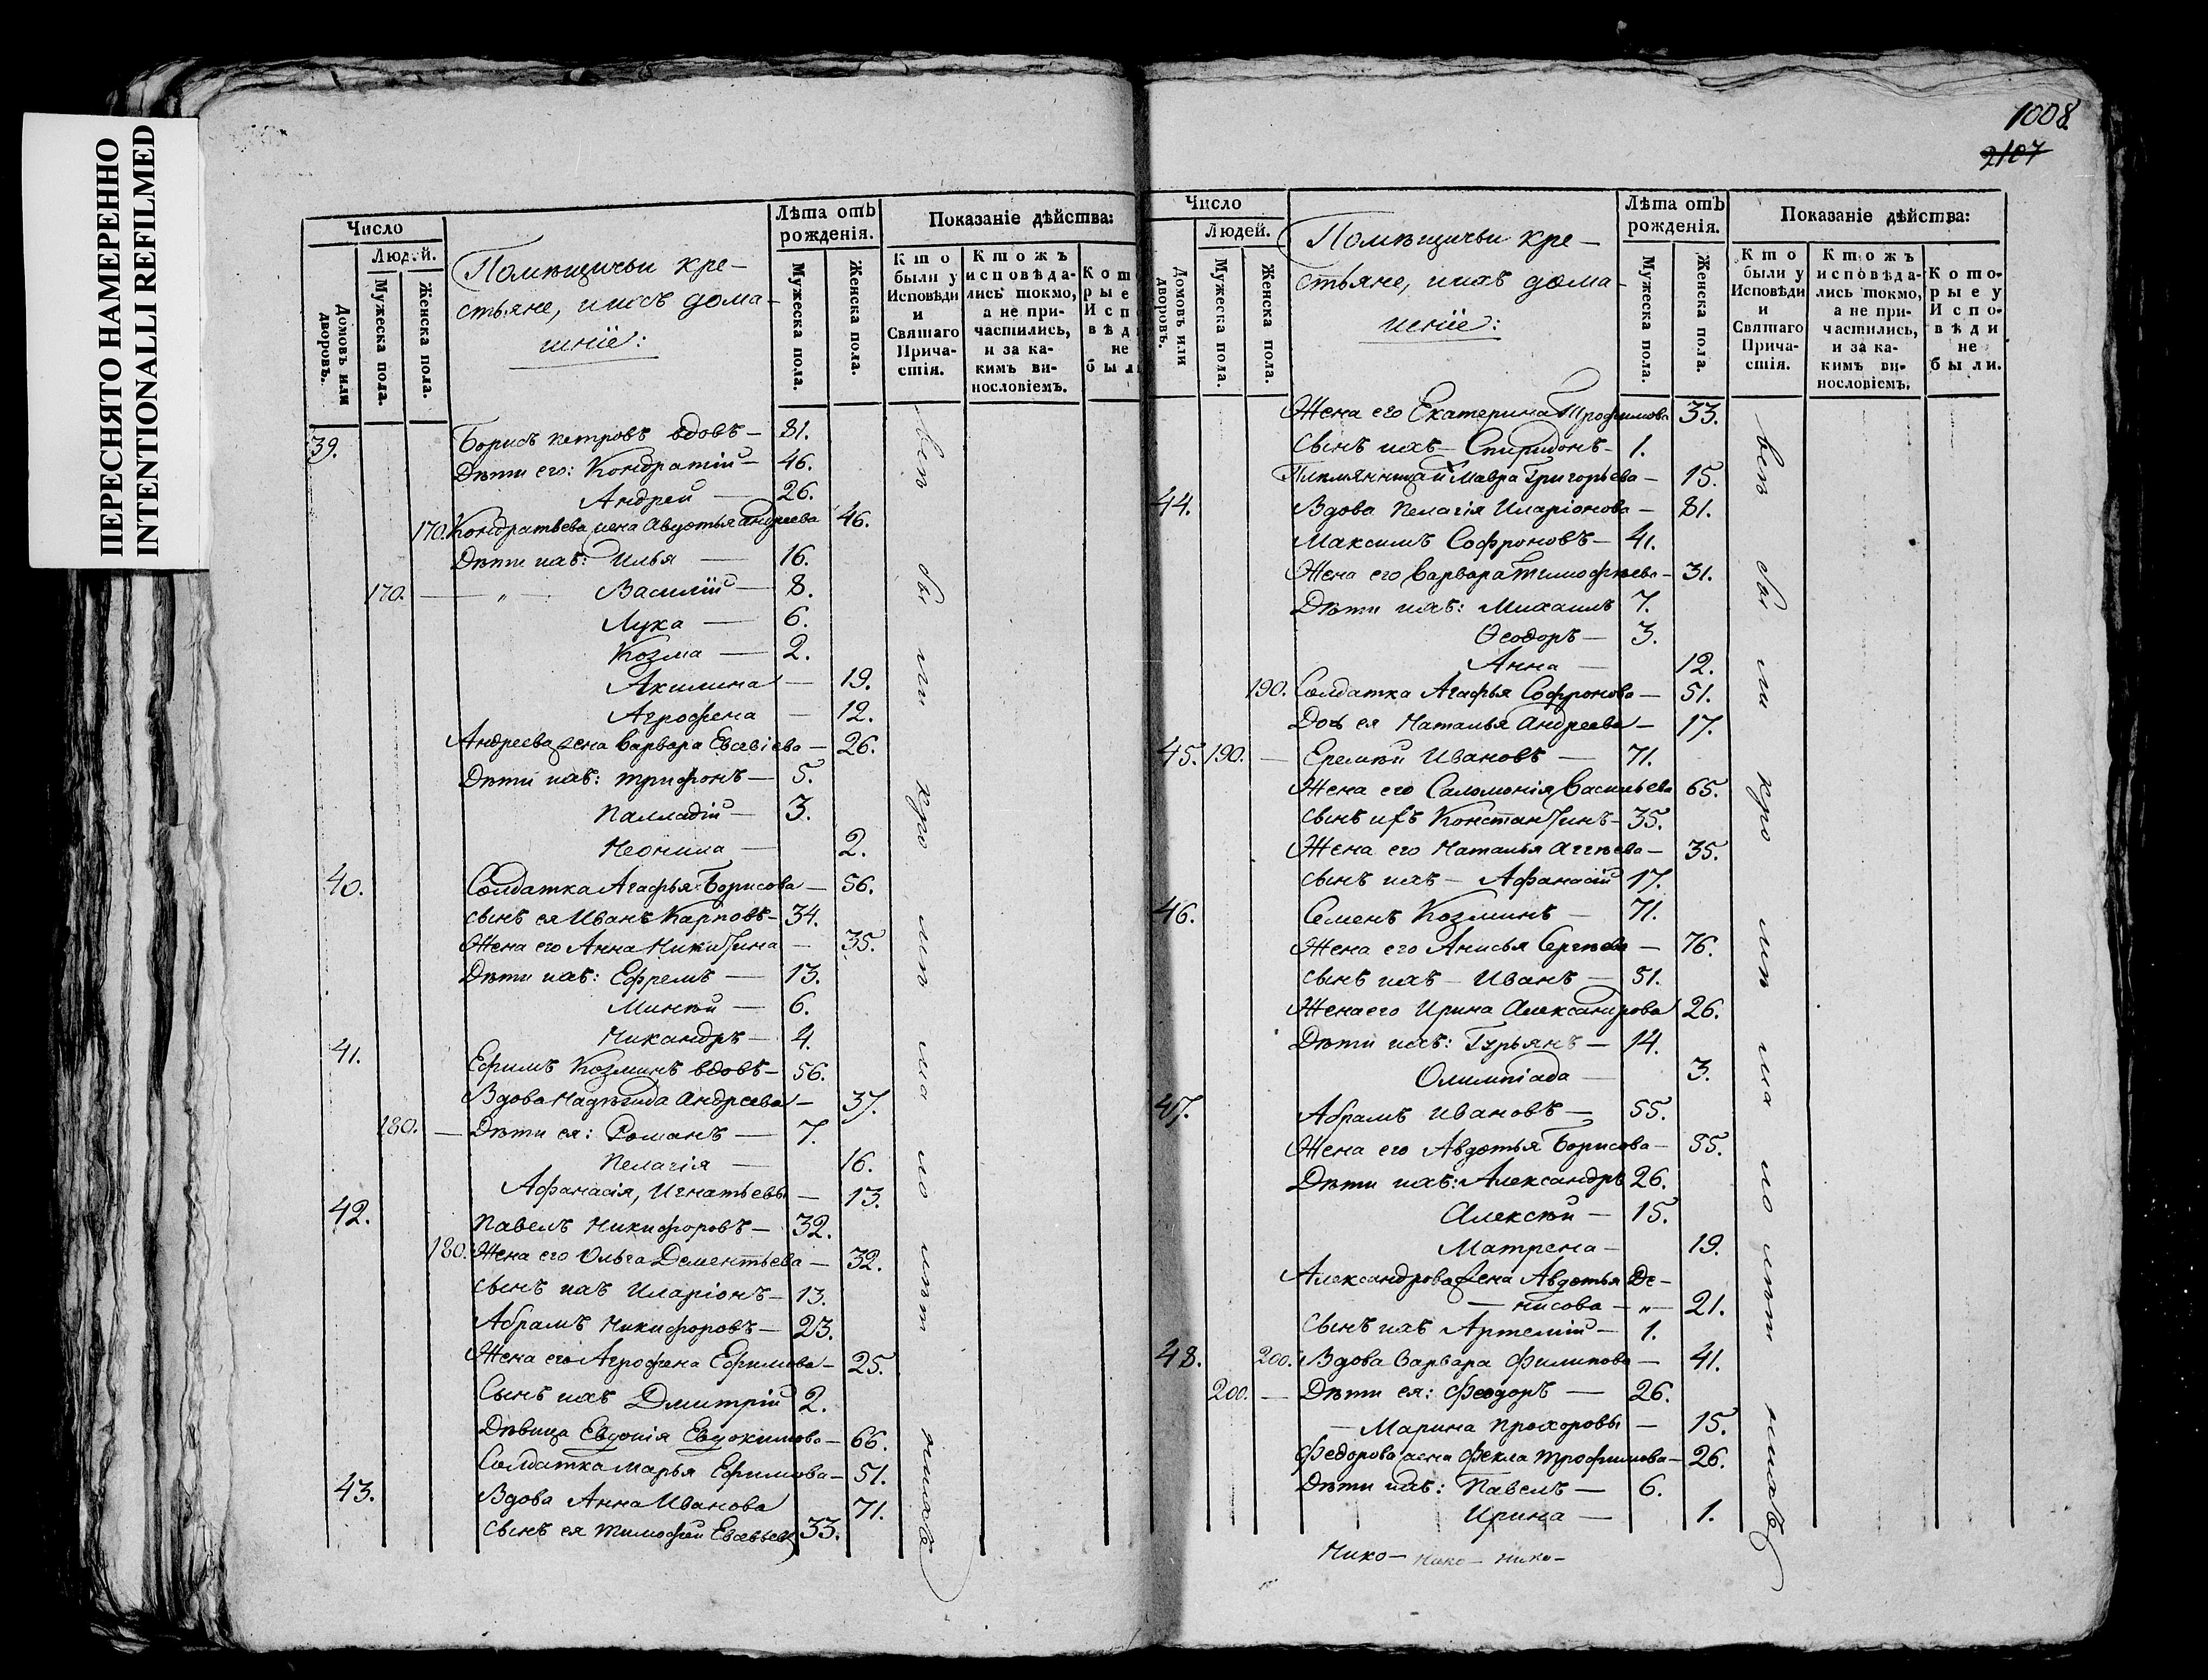 ПЕРЕСНЯТО НАМЕРЕННО
INTENTIONALLI REFILMED
Число
Людей.
Домовъ или дворовъ.
Мужеска пола.
Женска пола.
Помѣщичьи кре-
стьяне, ихъ дома-
шнїе:
Лѣта отъ рожденія.
Мужеска пола.
Женска пола.
Показаніе дѣйства:
Кто были у Исповѣди и Святаго Прича-стія.
Ктожъ исповѣда-лись токмо, а не при-частились, и за ка-кимъ ви-нословіемъ.
39. Борисъ Петровъ вдовъ — 81.
Дѣти его: Кондратій — 46.
Андрей — 26.
170. Кондратьева жена Авдотья Андреева 46.
Дѣти ихъ: Илья — 16.
170. — „ — Василїй — 8.
Лука — 6.
Козма — 2.
Акилина — 19.
Агрофена — 12.
Андреева жена Варвара Евсевіева — 26.
Дѣти ихъ: Трифонъ — 5.
Палладій — 3.
Неонила — 2.
40. Солдатка Агафья Борисова — 56.
сынъ ея Иванъ Карповъ — 34.
Жена его Анна Никитина — 35.
Дѣти ихъ: Ефремъ — 13.
Минѣй — 6.
Никандръ — 4.
41. Ефимъ Козминъ вдовъ — 56.
Вдова Надѣгида Андреева — 37.
180. — Дѣти ея: Романъ — 7.
Пелагія — 16.
Афанасія, Игнатьевы — 13.
42. Павелъ Никифоровъ — 32.
180. Жена его Ольга Дементьева — 32.
сынъ ихъ Иларіонъ — 13.
Абрамъ Никифоровъ — 23.
Жена его Агрофена Ефимова — 25.
Сынъ ихъ Дмитрій 2.
Дѣвица Евдокія Евдокимова — 66.
Солдатка Марья Ефимова — 51.
43. Вдова Анна Иванова 71.
сынъ ея Тимофей Евсевьевъ 33.
1008
2107
Число
Людей.
Домовъ или дворовъ.
Мужеска пола.
Женска пола.
Помѣщичьи кре-
стьяне, ихъ дома-
шнїе:
Лѣта отъ рожденія.
Мужеска пола.
Женска пола.
Показаніе дѣйства:
Кто были у Исповѣди и Святаго Прича-стія.
Ктожъ исповѣда-лись токмо, а не при-частились, и за ка-кимъ ви-нословіемъ.
Кото-рые у Испо-вѣди не были.
Жена его Екатерина Трофимова 33.
сынъ ихъ — Спиридонъ — 1.
Племянница Мавра Григорьева — 15.
44. Вдова Пелагія Иларіонова — 81.
Максимъ Софроновъ — 41.
Жена его Варвара Тимофѣева — 31.
Дѣти ихъ: Михаилъ 7.
Ѳеодоръ — 3.
Анна — 12.
190. Солдатка Агафья Софронова — 51.
Дочь ея Наталья Андреева — 17.
45. 190. — Еремѣй Ивановъ — 71.
Жена его Саломонія Васильева 65.
сынъ ихъ Константинъ — 35.
Жена его Наталья Аггѣева — 35.
сынъ ихъ — Афанасій 17.
46. Семенъ Козминъ — 71.
Жена его Анисья Сергѣева — 76.
сынъ ихъ — Иванъ — 51.
Жена его Ирина Александрова 26.
Дѣти ихъ: Гурьянъ — 14.
Олимпіада — 3.
47. Абрамъ Ивановъ — 55.
Жена его Авдотья Борисова — 55.
Дѣти ихъ: Александръ 26.
Алексѣй — 15.
Матрена — 19.
Александрова жена Авдотья Де-
— нисова — „ — 21.
сынъ ихъ Артемій — 1.
48. 200. Вдова Варвара Филипова — 41.
200. — Дѣти ея: Феодоръ — 26.
— Марина Прохоровы — 15.
Федорова жена Фекла Трофимова — 26.
Дѣти ихъ: Павелъ — 6.
Ирина — 1.
Нико — нико — нико —